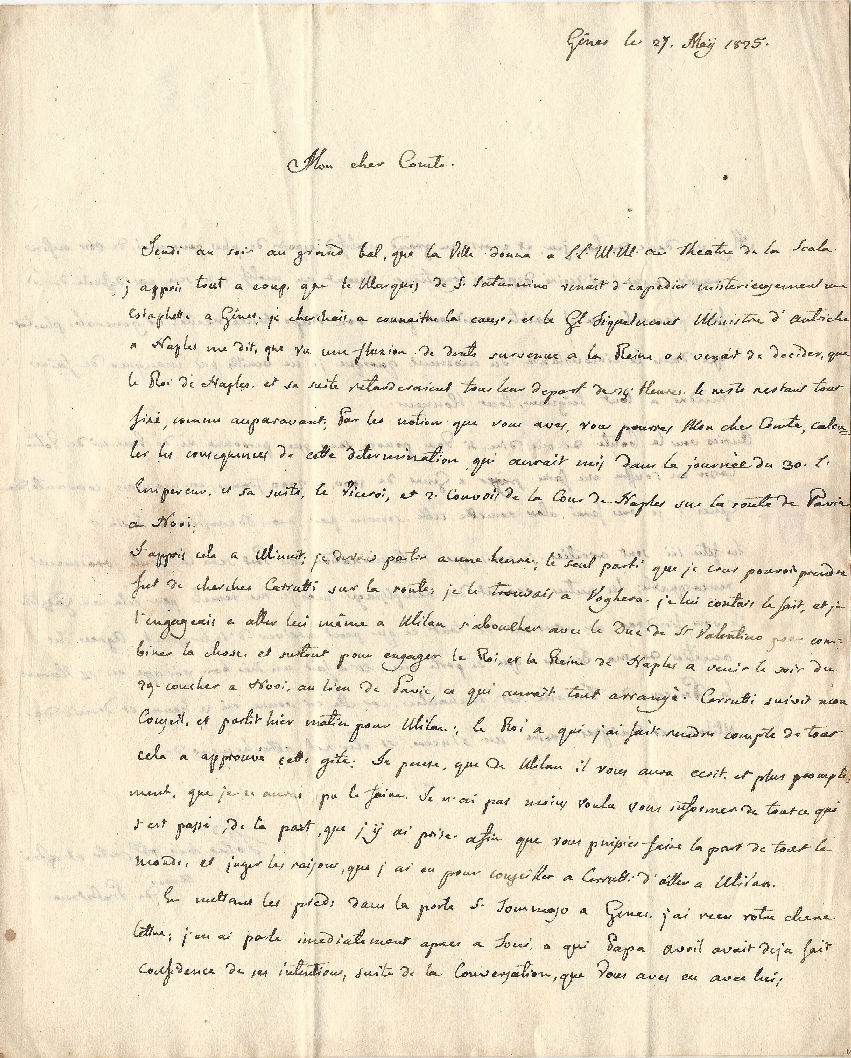 Gênes le 27. Maÿ 1825.
Mon cher Comte.
Jeudi au soir au grand bal, que la Ville donna a LL MM au theatre de la Scala
j'appris tout a coup, que le Marquis de S. Saturnino venait d'expedier misterieusement une
estaphette a Gênes; je cherchais a connaitre la cause, et le Gl Fiquelmont Ministre d'Autriche
a Naples me dit, que vu une fluxion de dents survenue a la Reine on venait de decider, que
le Roi de Naples, et sa suite retarderaient tous leur depart de 24 heures, le reste restant tout
fixé, comme auparavant. Par les notion que vous aves, vous pourres Mon cher Comte, calcu-
ler les consequences de cette determination qui aurait mis dans la journée du 30. l'
Empereur, et sa suite, le Viceroi, et 2. Convois de la Cour de Naples sur la route de Pavie
a Novi.
J'appris cela a Minuit; je devais partir a une heure; le seul parti que je crus pouvoir prendre
fut de chercher Cerrutti sur la route; je le trouvais a Voghera. je lui contais le fait, et je
l'engageais a aller lui même a Milan s'aboucher avec le Duc de St Valentino pour com-
biner la chose, et surtout pour engager le Roi, et la Reine de Naples a venir le soir du
29. coucher a Novi, au lieu de Pavie, ce qui aurait tout arrangé. Cerrutti suivit mon
Conseil, et partit hier matin pour Milan; le Roi a qui j'ai fait rendre compte de tout
cela a approuvé cette gite; Je pense, que de Milan il vous aura ecrit, et plus prompte-
ment, que je ne aurais pu le faire. Je n'ai pas moins voulu vous informer de tout ce qui
s'est passé, de la part, que j'y ai prise afin que vous puissies faire la part de tout le
monde, et juger les raisons, que j'ai eu pour conseiller a Cerrutti d'aller a Milan.
En mettant les pieds dans la porte S. Tommaso a Gênes, j'ai reçu votre chere
lettre; j'en ai parlé imediatement apres a , a qui Papa avait deja fait
Confidence de ses intentions, suite de la Conversation, que Vous aves eu avec lui;